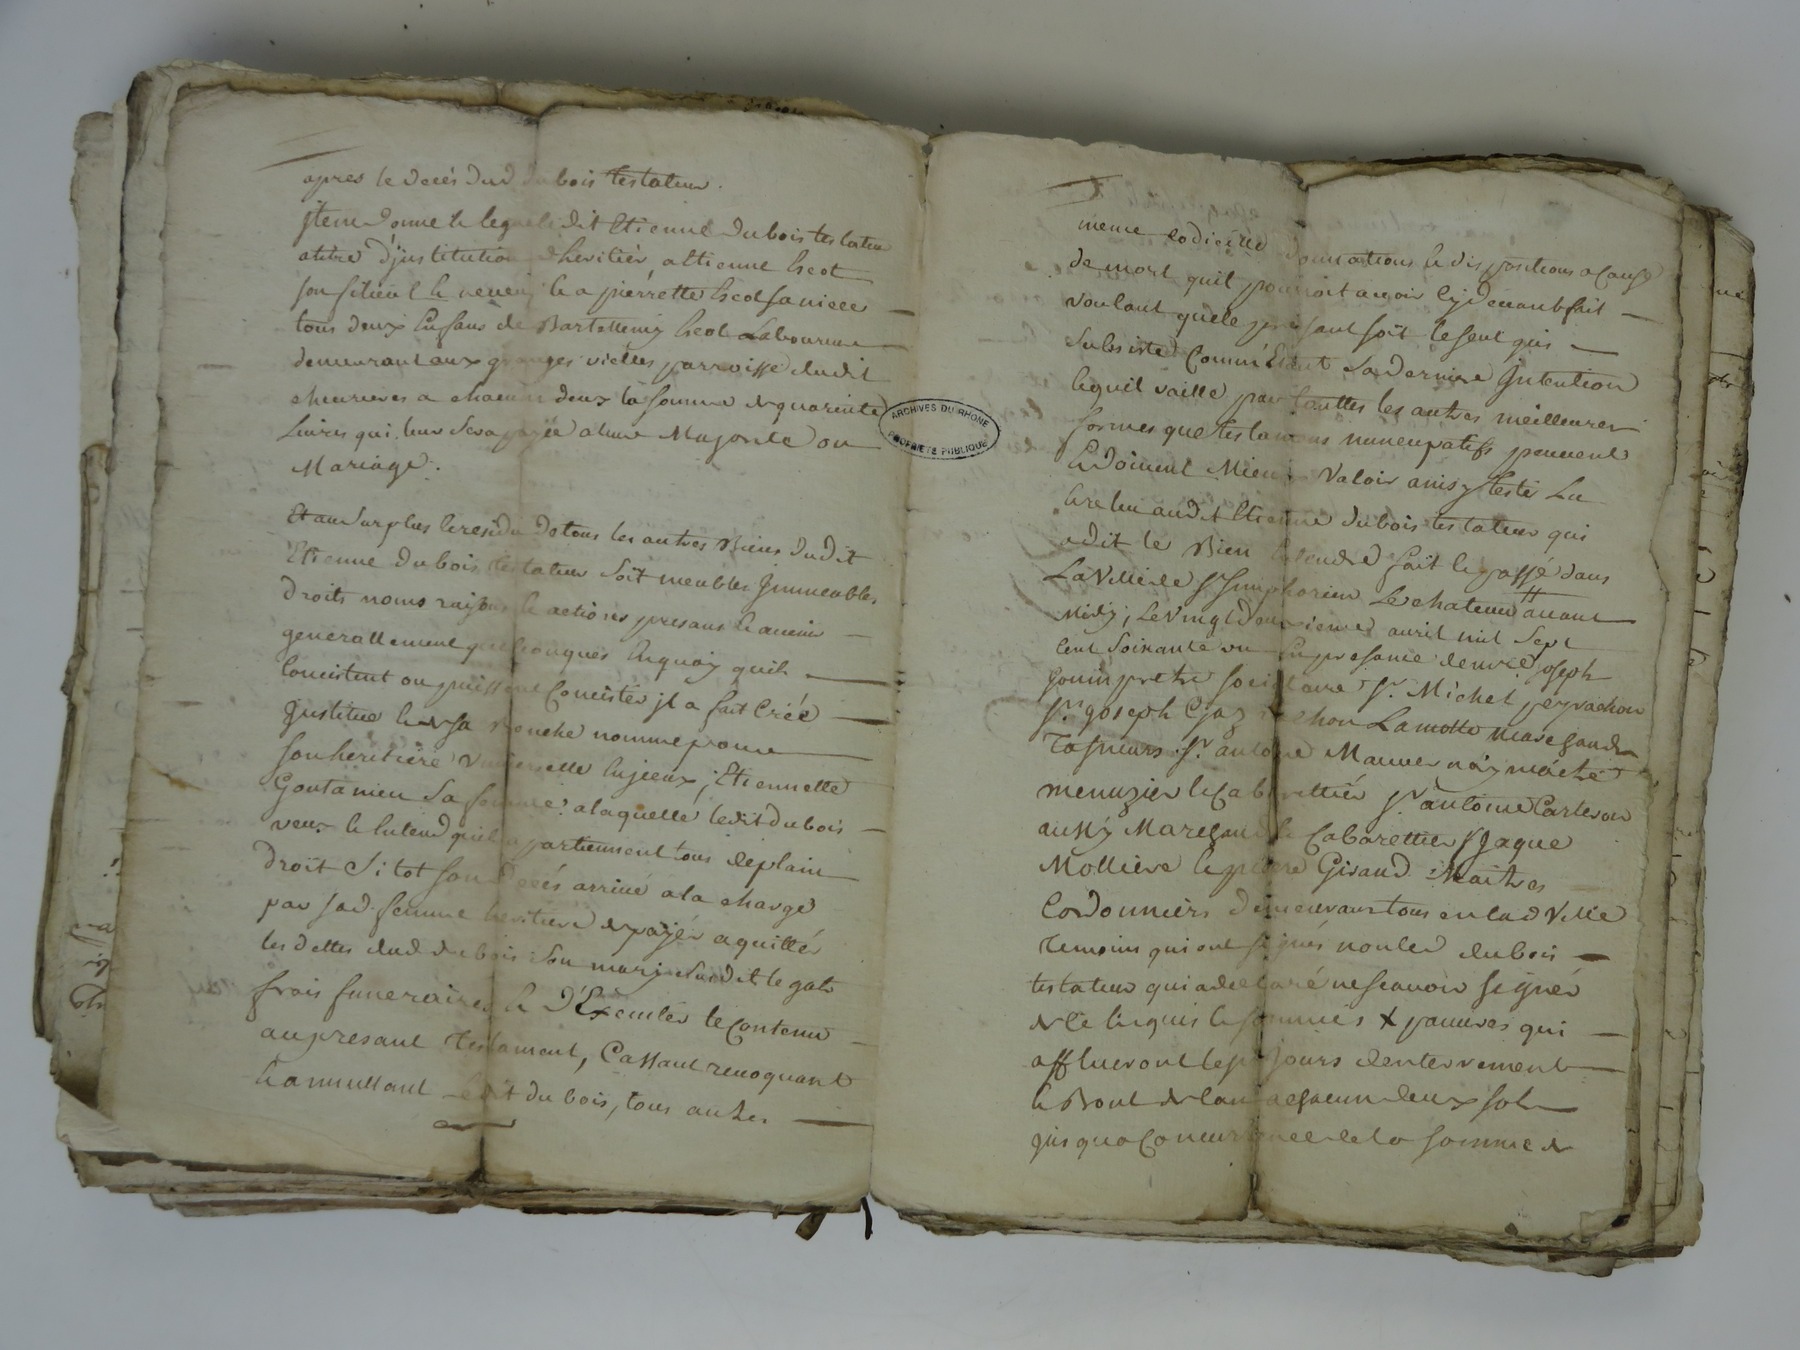 apres le deces dud dubois testateur.
jtem donne & legue ledit Etienne dubois testateur
atitre d'jnstitution dheritier a Etienne
son filieul & neveu & a pierrette sa niece
tous deux Enfans de Bartellemy Laboureur
demeurant aux granges vielles parroisse dudit
chevrieres a chacun deux la somme de quarente
Livres qui leur sera payée a leur Majorité ou
Mariage.
Et au surplus & residu de tous les autres Biens dudit
Etienne dubois testateur soit meubles jmmeubles
droits noms raisons & actions presans & avenir
generallement quelconques En quoy quils
concistent ou puissent concister jl a fait Créé
jnstitue & de sa Bouche nomme pour
son heritiere universelle Etiennette
Goutanieu sa femme a laquelle ledit dubois
veux & Entend quils apartiennent tous de plain
droit sitot son deces arrivé a la charge
par sad. femme heritiere de payér aquittér
les dettes dud dubois son mary susdit legats
frais funeraires & d'Executér le contenu
au presant Testament, Cassant revoquant
& annullant ledit dubois, tous autres
meme codicille donnations & dispositions a cause
de mort quil pourroit avoir cy devant fait
voulant que le presant soit le seul qui
subsiste comme Etant sa derniere jntention
& quil vaille par touttes les autres meilleures
formes que testamens nuncupatifs peuvent
& doivent Mieux Valoir ainsy testé Lu
& relu audit Etienne dubois testateur qui
a dit le Bien Entendre fait & passé dans
La Ville de St Simphorien Le chateau avant
Midy, Le vingt deuxieme avril mil sept
cent soixante un En presance de mre joseph
pretre societaire Sr Michel peyrachon
Sr joseph Lamotte marchands
Sr antoine
menuzier & cabarettiér Sr antoine
aussy Marchand & Cabarettier Sr jaque
Mollière & pierre Giraud Maitres
Cordonniers demeurans tous en lad Ville
temoins qui ont signés non led dubois
testateur qui a declaré ne scavoir signér
de ce Enquis & sommés X pauvres qui
afflueront les jours denterrement
& Bout de lan a chacun deux sols
jusqua concurrance de la somme de
ARCHIVES DU RHONE
PROPRIETE PUBLIQUE